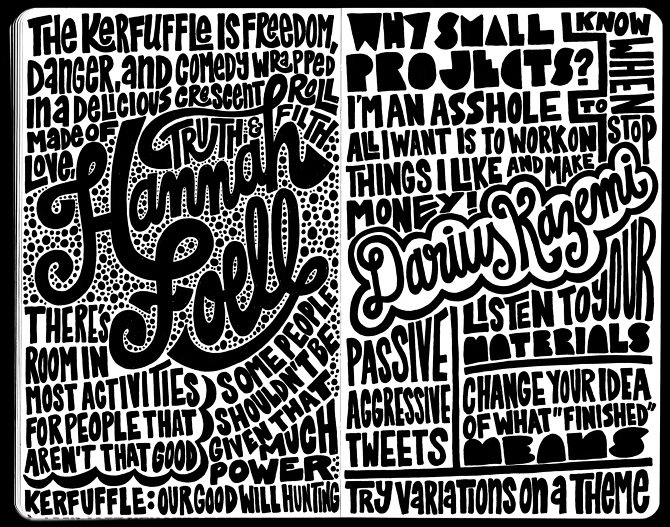 THE KERFUFFLE IS FREEDOM,
DANGER, AND COMEDY WRAPPED
IN A DELICIOUS CRESCENT ROLL
MADE OF TRUTH & FILTH.
LOVE.
Hannah
Foell
THERE'S
ROOM IN
MOST ACTIVITIES
FOR PEOPLE THAT
AREN'T THAT GOOD
SOME PEOPLE
SHOULDN'T BE
GIVEN THAT
MUCH
POWER
KERFUFFLE: OUR GOOD WILL HUNTING
WHY SMALL
PROJECTS?
I'M AN ASSHOLE
ALL I WANT IS TO WORK ON
THINGS I LIKE AND MAKE
MONEY!
KNOW
WHEN
TO
STOP
Darius Kazemi
PASSIVE
AGGRESSIVE
TWEETS
LISTEN TO YOUR
MATERIALS
CHANGE YOUR IDEA
OF WHAT "FINISHED"
MEANS
TRY VARIATIONS ON A THEME